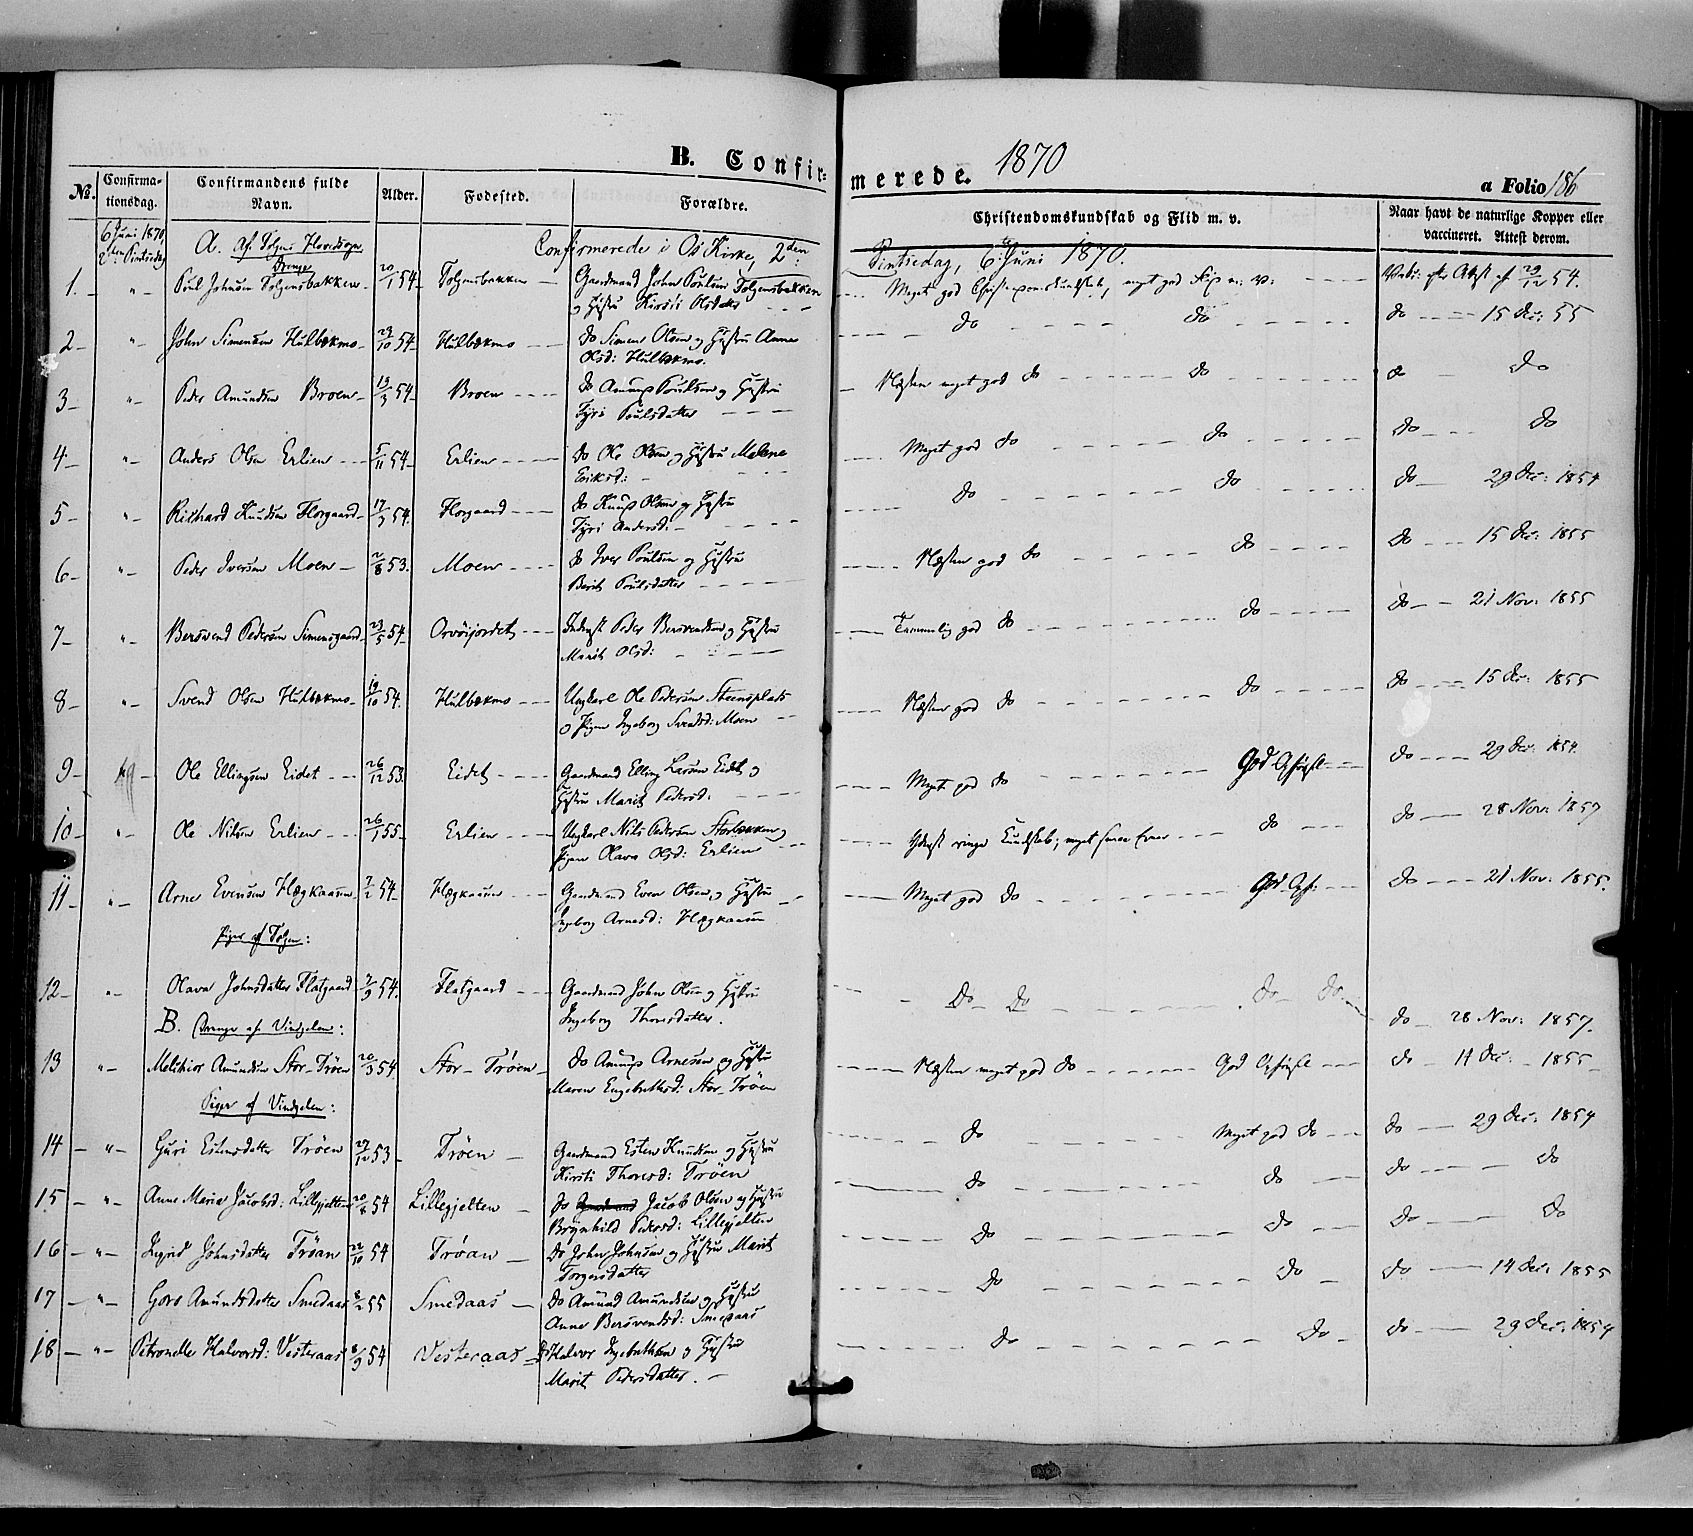 B. Confirmerede. 1870
a Folio 186
No. Confirmationsdag. Confirmandens fulde Navn. Alder. Fødested. Forældre. Christendomskundskab og Flid m. v. Naar havt de naturlige Kopper eller vaccineret. Attest derom.
6 Juni 1870, 2den Pintsedag A. Af Tolgen Hovedsogn Confirmerede i Os Kirke, 2den Pintsedag, 6 Juni 1870.
Drenge
1. - " - Poul Johnsen Tolgensbakken 20/1 54 Tolgensbakken Gaardmand John Poulsen Tolgensbakken Meget god Christendomskundskab, meget god Vac: efter Attest af 29/12 54.
og Hustru Kirsti Olsdatter
2 - " - John Simensen Hulbækmo 23/10 54 Hulbækmo do Simen Olsen og Hustru Anne do do do 15 Dec: 55
Olsd: Hulbækmo.
3 - " - Peder Amundsen Broen 13/3 54 Broen do Amund Poulsen og Hustru Næsten meget god do do do do
Tyri Poulsdatter
4 - " - Anders Olsen Erlien 5/11 54 Erlien do Ole Olsen og Hustru Malene Meget god do do do do
Eriksd:
5 - " - Richard Knudsen Horgaard 17/7 54 Horgaard do Knud Olsen og Hustru do do do 29 Dec: 1854
Tyri Andersd:
6 - " - Peder Iversen Moen 2/8 53. Moen do Iver Poulsen og Hustru Næsten god do do do 15 Dec: 1855
Berit Poulsdatter
7 - " - Bersvend Pedersen Simensgaard 23/5 54 Orvøsjordet Inderst Peder Bersvendsen og Hustru Temmelig god do do do 21 Nov: 1855
Marit Olsd:
8 - " - Svend Olsen Hulbækmo 19/10 54. Hulbækmo Ungkarl Ole Pedersen Steensplads Næsten god do do do 15 Dec: 1855
og Pigen Ingeborg Svendsd: Moen
9 - Ole Ellingsen Eidet 26/12 53 Eidet Gaardmand Elling Larsen Eidet og Meget god do God Opførsel do 29 Dec: 1854.
Hustru Marit Pedersd:
10 - " - Ole Nilsen Erlien 26/1 55 Erlien Ungkarl Nils Pedersen Storbækken og Yderst ringe Kundskab; meget smaa Evner do do 28 Nov: 1857
Pigen Olava Olsd: Erlien
11 - " - Arne Evensen Hægkaasen 7/2 54 Hægkaasen Gaardmand Even Olsen og Hustru Meget god do God Opf: do 21 Nov: 1855.
Ingeborg Arnesd: Hægkaasen
Piger af Tolgen:
12 - " - Olava Johnsdatter Flatgaard 7/9 54. Flatgaard Gaardmand John Olsen og Hustru do do do do do 28 Nov: 1857.
Ingeborg Thoresdatter.
B. Drenge af Vingelen:
13 " - Melchior Amundsen Stor-Trøen 20/3 54. Stor-Trøen do Amund Arnesen og Hustru Næsten meget god do God Opførsel do 11 Dec: 1855
Maren Engebretsd: Stor-Trøen
Piger af Vingelen:
14 - " - Guri Estensdatter Trøen 27/12 53 Trøen Gaardmand Esten Knudsen og Hustru do Meget god do do 29 Dec: 1854
Kirsti Thoresd: Trøen
15 - " - Anne Maria Jacobsd: Lillegjelten 20/8 54 Lillegjelten do Jacob Olsen og Hustru do do do do
Brynhild Pedersd: Lillegjelten
16 - " - Ingrid Johnsdatter Trøan 22/10 54 Trøan do John Johnsen og Hustru Marit do do do do
Torgersdatter
17 - " - Goro Amundsdatter Smedaas 8/2 55 Smedaas do Amund Amundsen og Hustru do do do 14 Dec: 1855
Anne Bersvendsd: Smedaas
18 - " - Petronelle Halvorsd: Vesteraas 8/9 54 Vesteraas do Halvor Ingebretsen og Hustru do do do 29 Dec: 1854
Marit Pedersdatter.